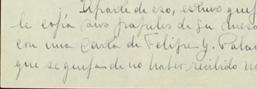 Aparte de eso, estuvo que
le cogía unos papeles de su mesa
con una carta de Felipe y. Pala
que se quejan de no haber recibido no